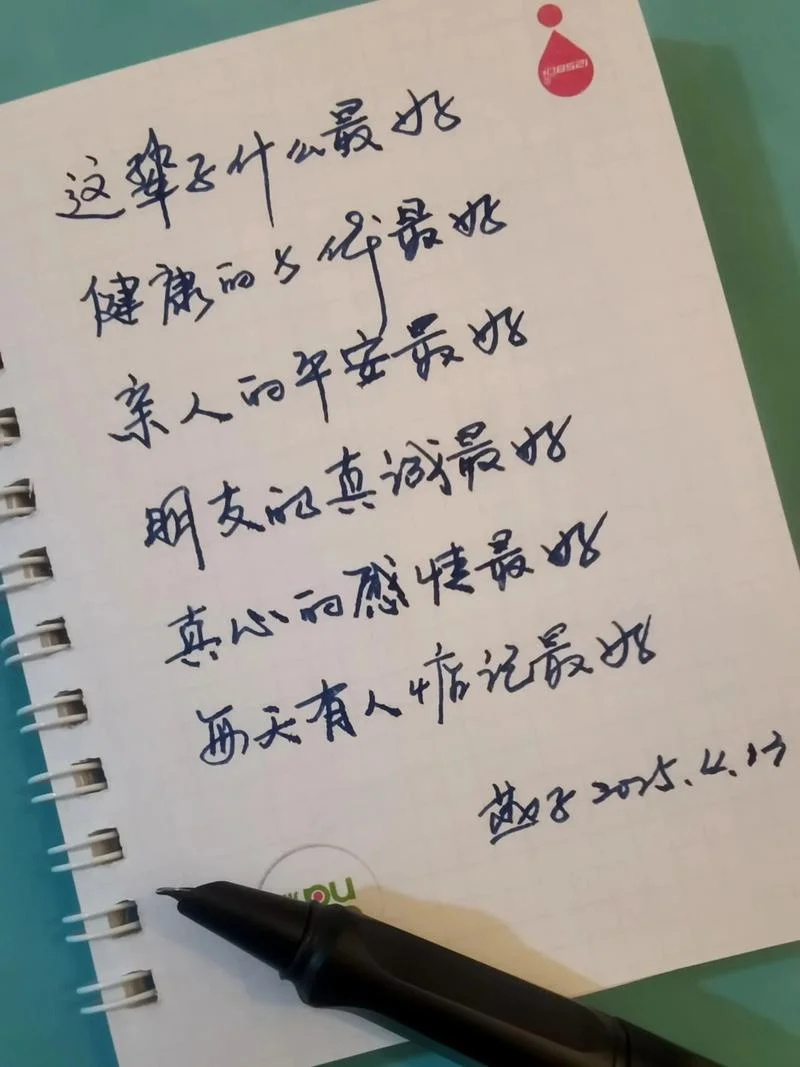 这辈子什么最好
健康的身体最好
亲人的平安最好
朋友的真诚最好
真心的感情最好
每天有人惦记最好
燕子 2025.4.13
pu